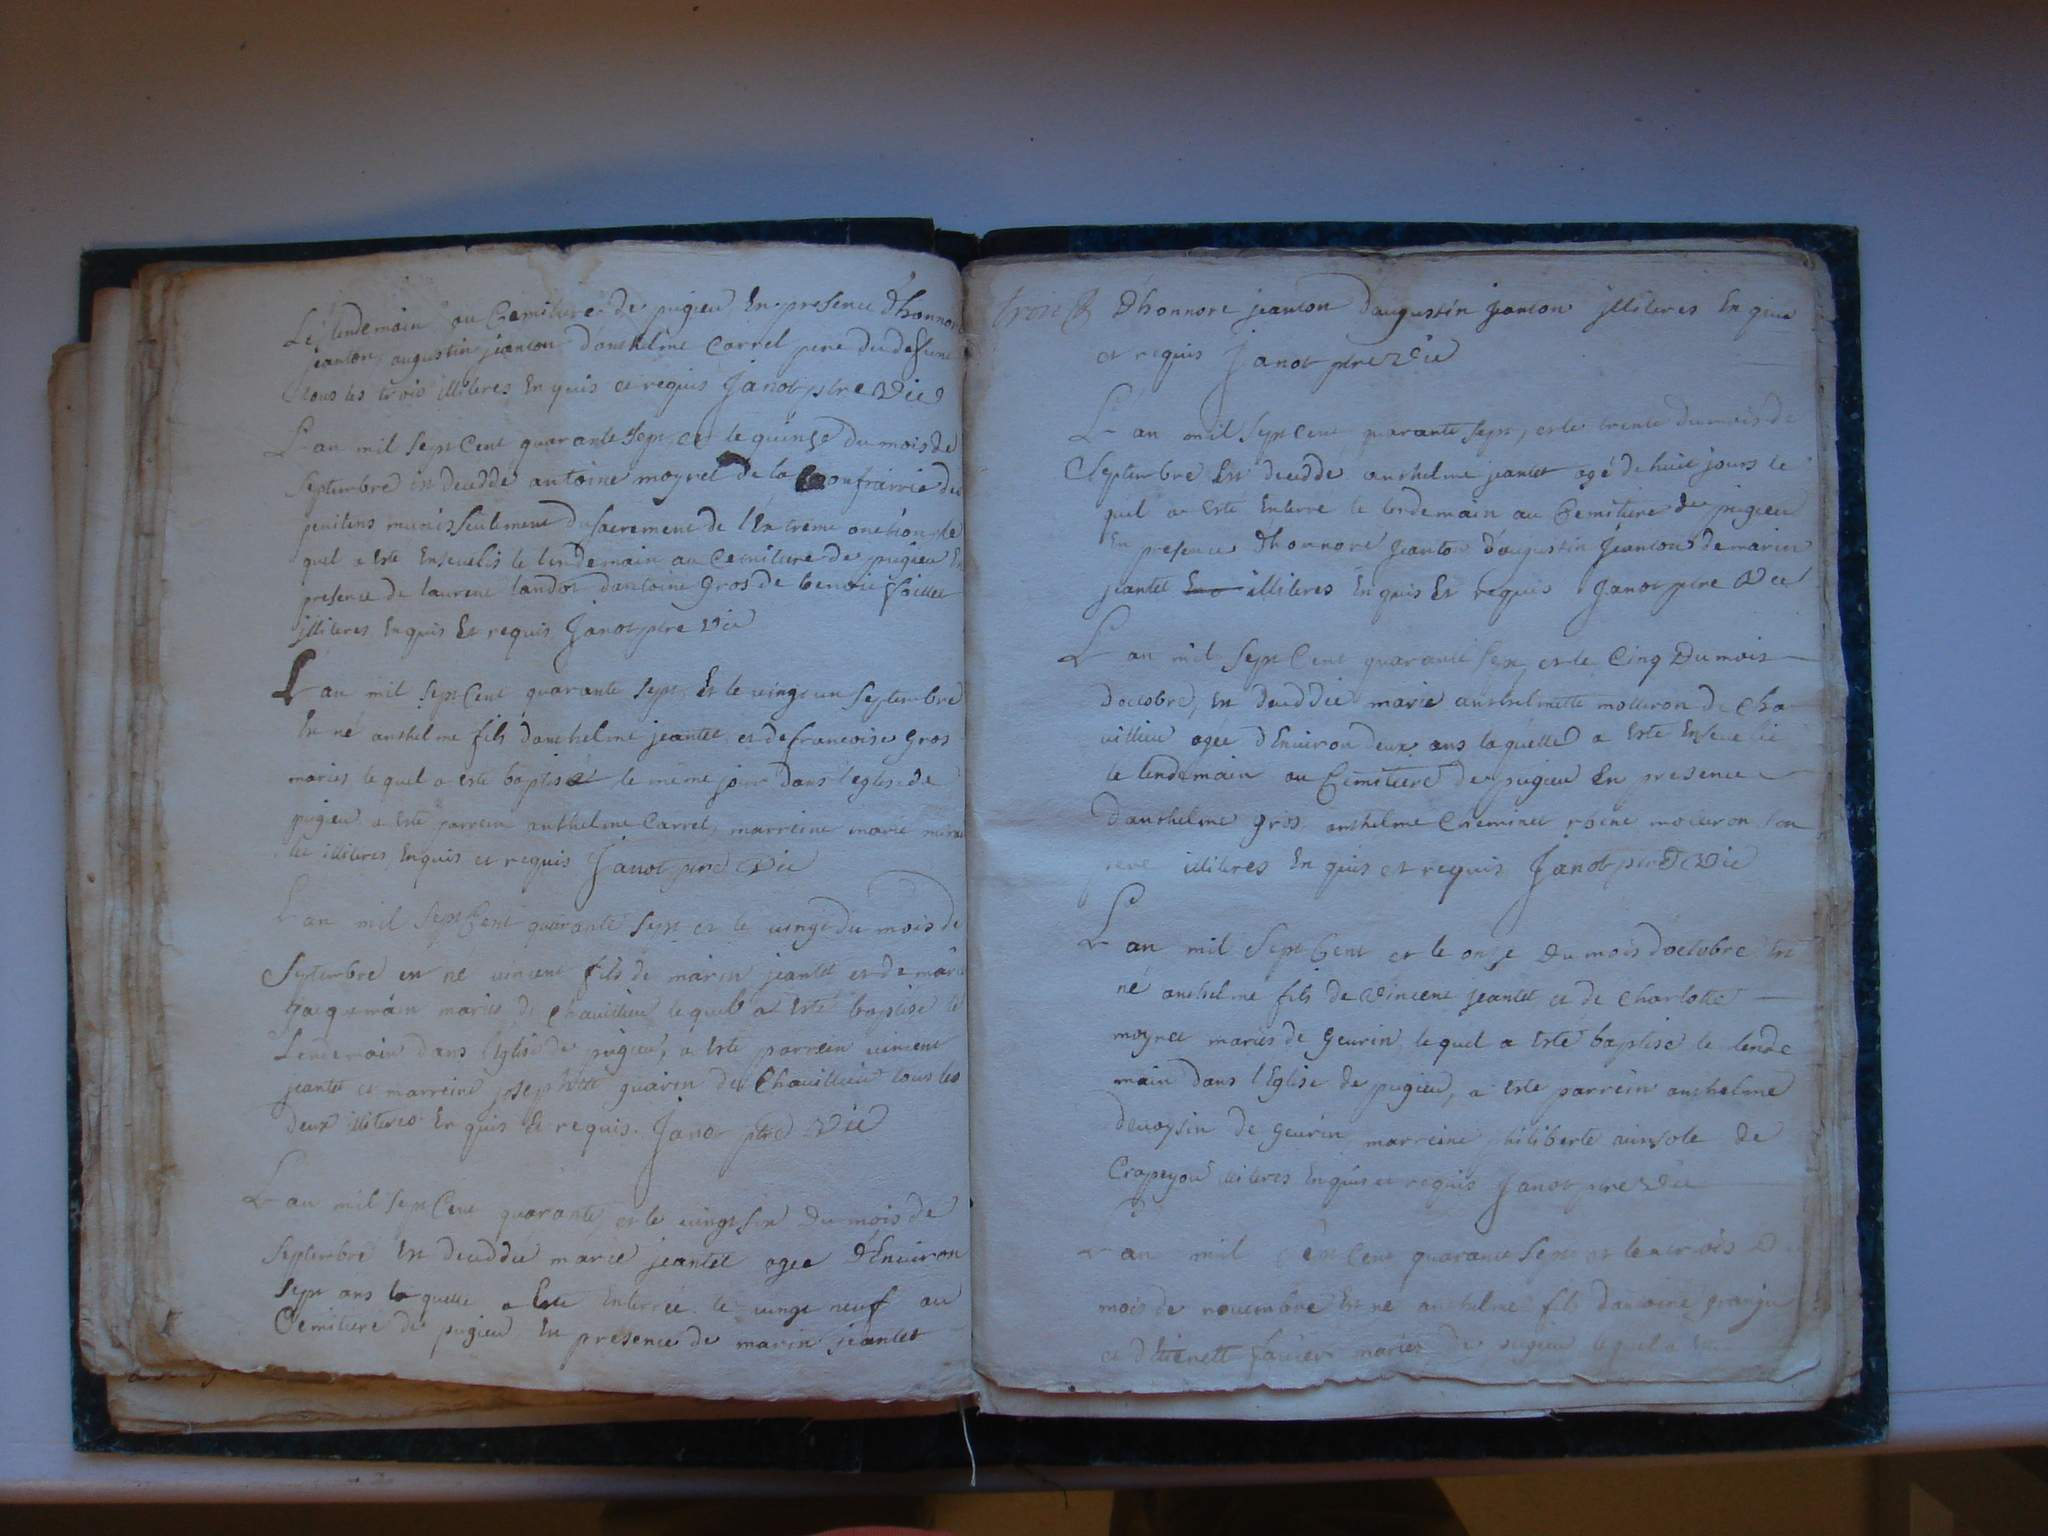 Le lendemain au Cemitiere de pugieu En presence d'honnore
jeanton augustin jeanton d'anthelme Carrel pere du defunt
tous les trois illiteres En quis et requis Janot ptre Vic
L'an mil sept Cent quarante sept et le quinze du mois de
septembre est decedde antoine moyret de la Confrairrie des
penitens munis seulement du sacrement de l'Extreme onction le
quel a Este Ensevelis le lendemain au Cemitiere de pugieu En
presence de laurent landot d'antoine gros de benoit
illiteres Enquis Et requis Janot ptre Vic
L'an mil sept Cent quarante sept Et le vingt un septembre
Est né anthelme fils d'anthelme jeantet et de francoise gros
maries le quel a este baptisé le même jour dans l'eglise de
pugieu a este parrein anthelme Carrel, marreine marie
illiteres Enquis et requis Janot ptre Vic
L'an mil sept Cent quarante sept et le vingt du mois de
Septembre est né vincent fils de marin jeantet et de marie
jacquemain maries de Chavillieu le quel a Esté baptisé le
Lendemain dans l'Eglise de pugieu, a Este parrein vincent
jeantet et marreine josephette guarin de Chavillieu tous les
deux illiteres En quis Et requis. Janot ptre Vic
L'an mil sept Cent quarante, et le vingt six du mois de
septembre Est deceddée marie jeantet agee d'Environ
sept ans la quelle a Este Enterrée le vingt neuf au
Cemitiere de pugieu En presence de marin jeantet
d'honnore jeanton d'augustin jeanton illiteres En quis
et requis Janot ptre Vic
L'an mil sept Cent quarante sept, et le trente du mois de
Septembre Est decedde anthelme jeantet agé de huit jours le
quel a Este Enterre le lendemain au Cemitiere de pugieu
En presence d'honnore jeanton d'augustin jeanton de marin
jeantet illiteres En quis Et requis Janot ptre Vic
L'an mil sept Cent quarante sept et le Cinq du mois
d'octobre, est deceddée marie anthelmette molleron de Cha
villieu agee d'Environ deux ans laquelle a Este Ensevelie
le lendemain au Cemitiere de pugieu En presence
d'anthelme gros, anthelme Cheminet molleron son
pere illiteres En quis et requis Janot ptre Vic
L'an mil sept Cent et le onze du mois d'octobre Est
né anthelme fils de Vincent jeantet et de Charlotte
moyret maries de geurin le quel a Esté baptisé le lende
main dans l'Eglise de pugieu, a Este parrein anthelme
devoysin de geurin marreine philiberte de
Crapeyou illiteres Enquis et requis Janot ptre Vic
L'an mil sept Cent quarante sept et le trois du
mois de novembre Est né anthelme fils d'antoine
et d'Etienette maries de pugieu lequel a Este